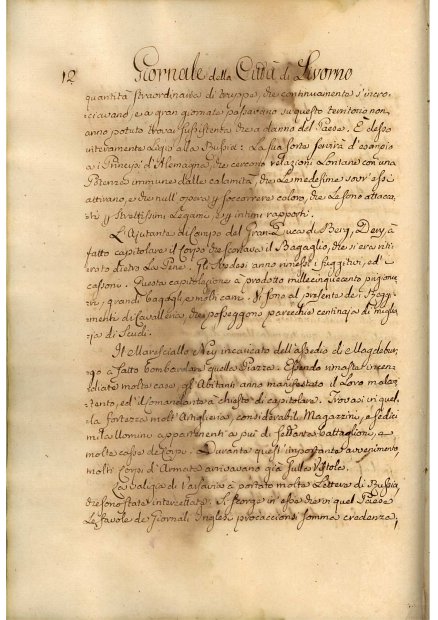 12 Giornale della Città di Livorno
quantità straordinaria di truppe, che continuamente s'incro-
ciavano, e a gran giornate passavano su questo territorio non
anno potuto trovar sussistenza che a danno del Paese. È desso
interamente ligio alla Russia: La sua sorte servirà d'esempio
a i Principi d'Alemagna, che cercono relazioni Lontane con una
Potenza immune dalle calamità, che Le medesime sovr'essi
attirano, e che null'opera per soccorrere coloro, che Le sono attacca-
ti per strettissimi Legami, e per intimi rapporti.
L'Ajutante di Campo del Gran-Duca di Berg, Dery, à
fatto capitolare il Corpo che scortava il Bagaglio, che si era riti-
rato dietro La Pene. Gli Svedesi anno rimessi i fuggitivi, ed i
cassoni. Questa capitolazione à prodotto millecinquecento prigio-
nieri, grandi bagagli, e molti carri. Vi sono al presente dei Reggi-
menti di Cavalleria, che posseggono parecchie centinaja di miglia-
ja di Scudi.
Il Maresciallo Ney incaricato dell'assedio di Magdebur-
go à fatto bombardare quella Piazza. Essendo rimaste incen-
diate molte case, gli Abitanti anno manifestato il Loro malcon-
tento, ed il Comandante à chiesto di capitolare. Trovasi in quel-
la fortezza molt'Artiglieria, considerabili Magazzini, e sedici
mila Uomini appartenenti a più di settanta battaglioni, e
molte casse de' Corpi. Durante questi importanti avvenimenti
molti Corpi d'Armata arrivavano già sulla Vistola.
La valigia di Varsavia à portato molte Lettere di Russia,
che sono state intercettate. Si scorge in esse che in quel Paese
Le favole de' Giornali Inglesi procacciono somma credenza,